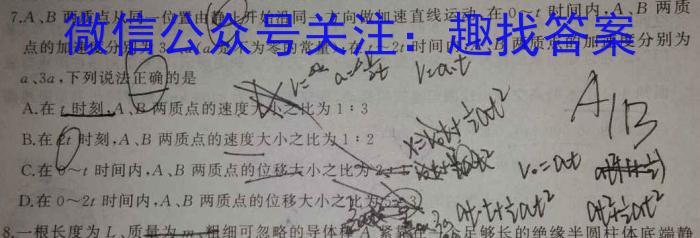 7.A、B 两质点从同一位置由静止开始沿同一方向做加速直线运动,在 0~t 时间内,A、B 两质
微信公众号关注:趣找答案
点的加速度分别为 3a、a 为不为零的常量 t~2t 时间内,A、B 两质点的加速度分别为
a、3a,下列说法正确的是
A.在 t 时刻,A、B 两质点的速度大小之比为 1:3
B.在 2t 时刻,A、B 两质点的速度大小之比为 1:2
C.在 0~t 时间内,A、B 两质点的位移大小之比为
D.在 0~2t 时间内,A、B 两质点的位移大小之比为 5:3
8.一根长度为 L、质量为 m、粗细可忽略的导体棒 A 紧靠在一个足够长的绝缘半圆柱体底端静
V=at
A/B
V₀=at
at·t+½at²
at²+½at²